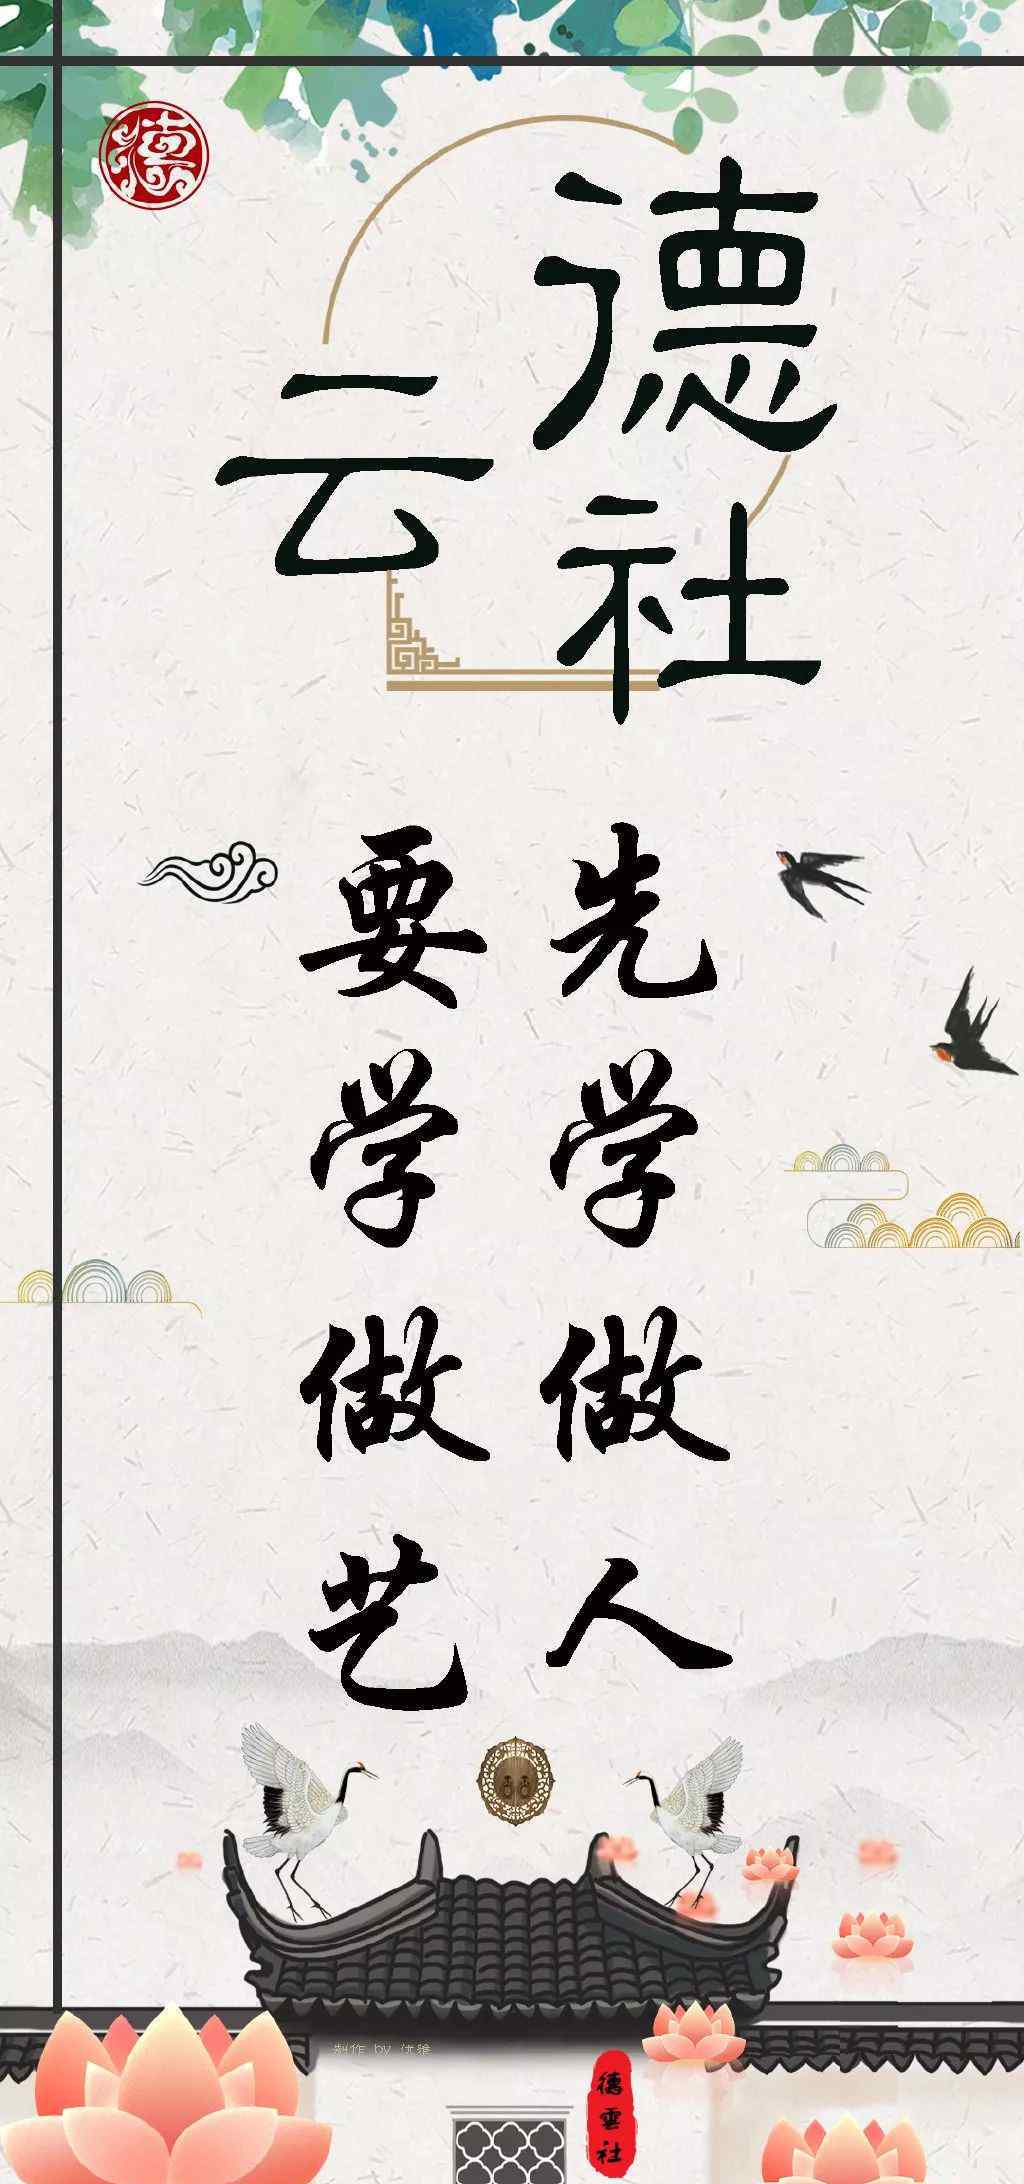 德云社
要学做艺
先学做人
德
制作 by 优雅
德雲社